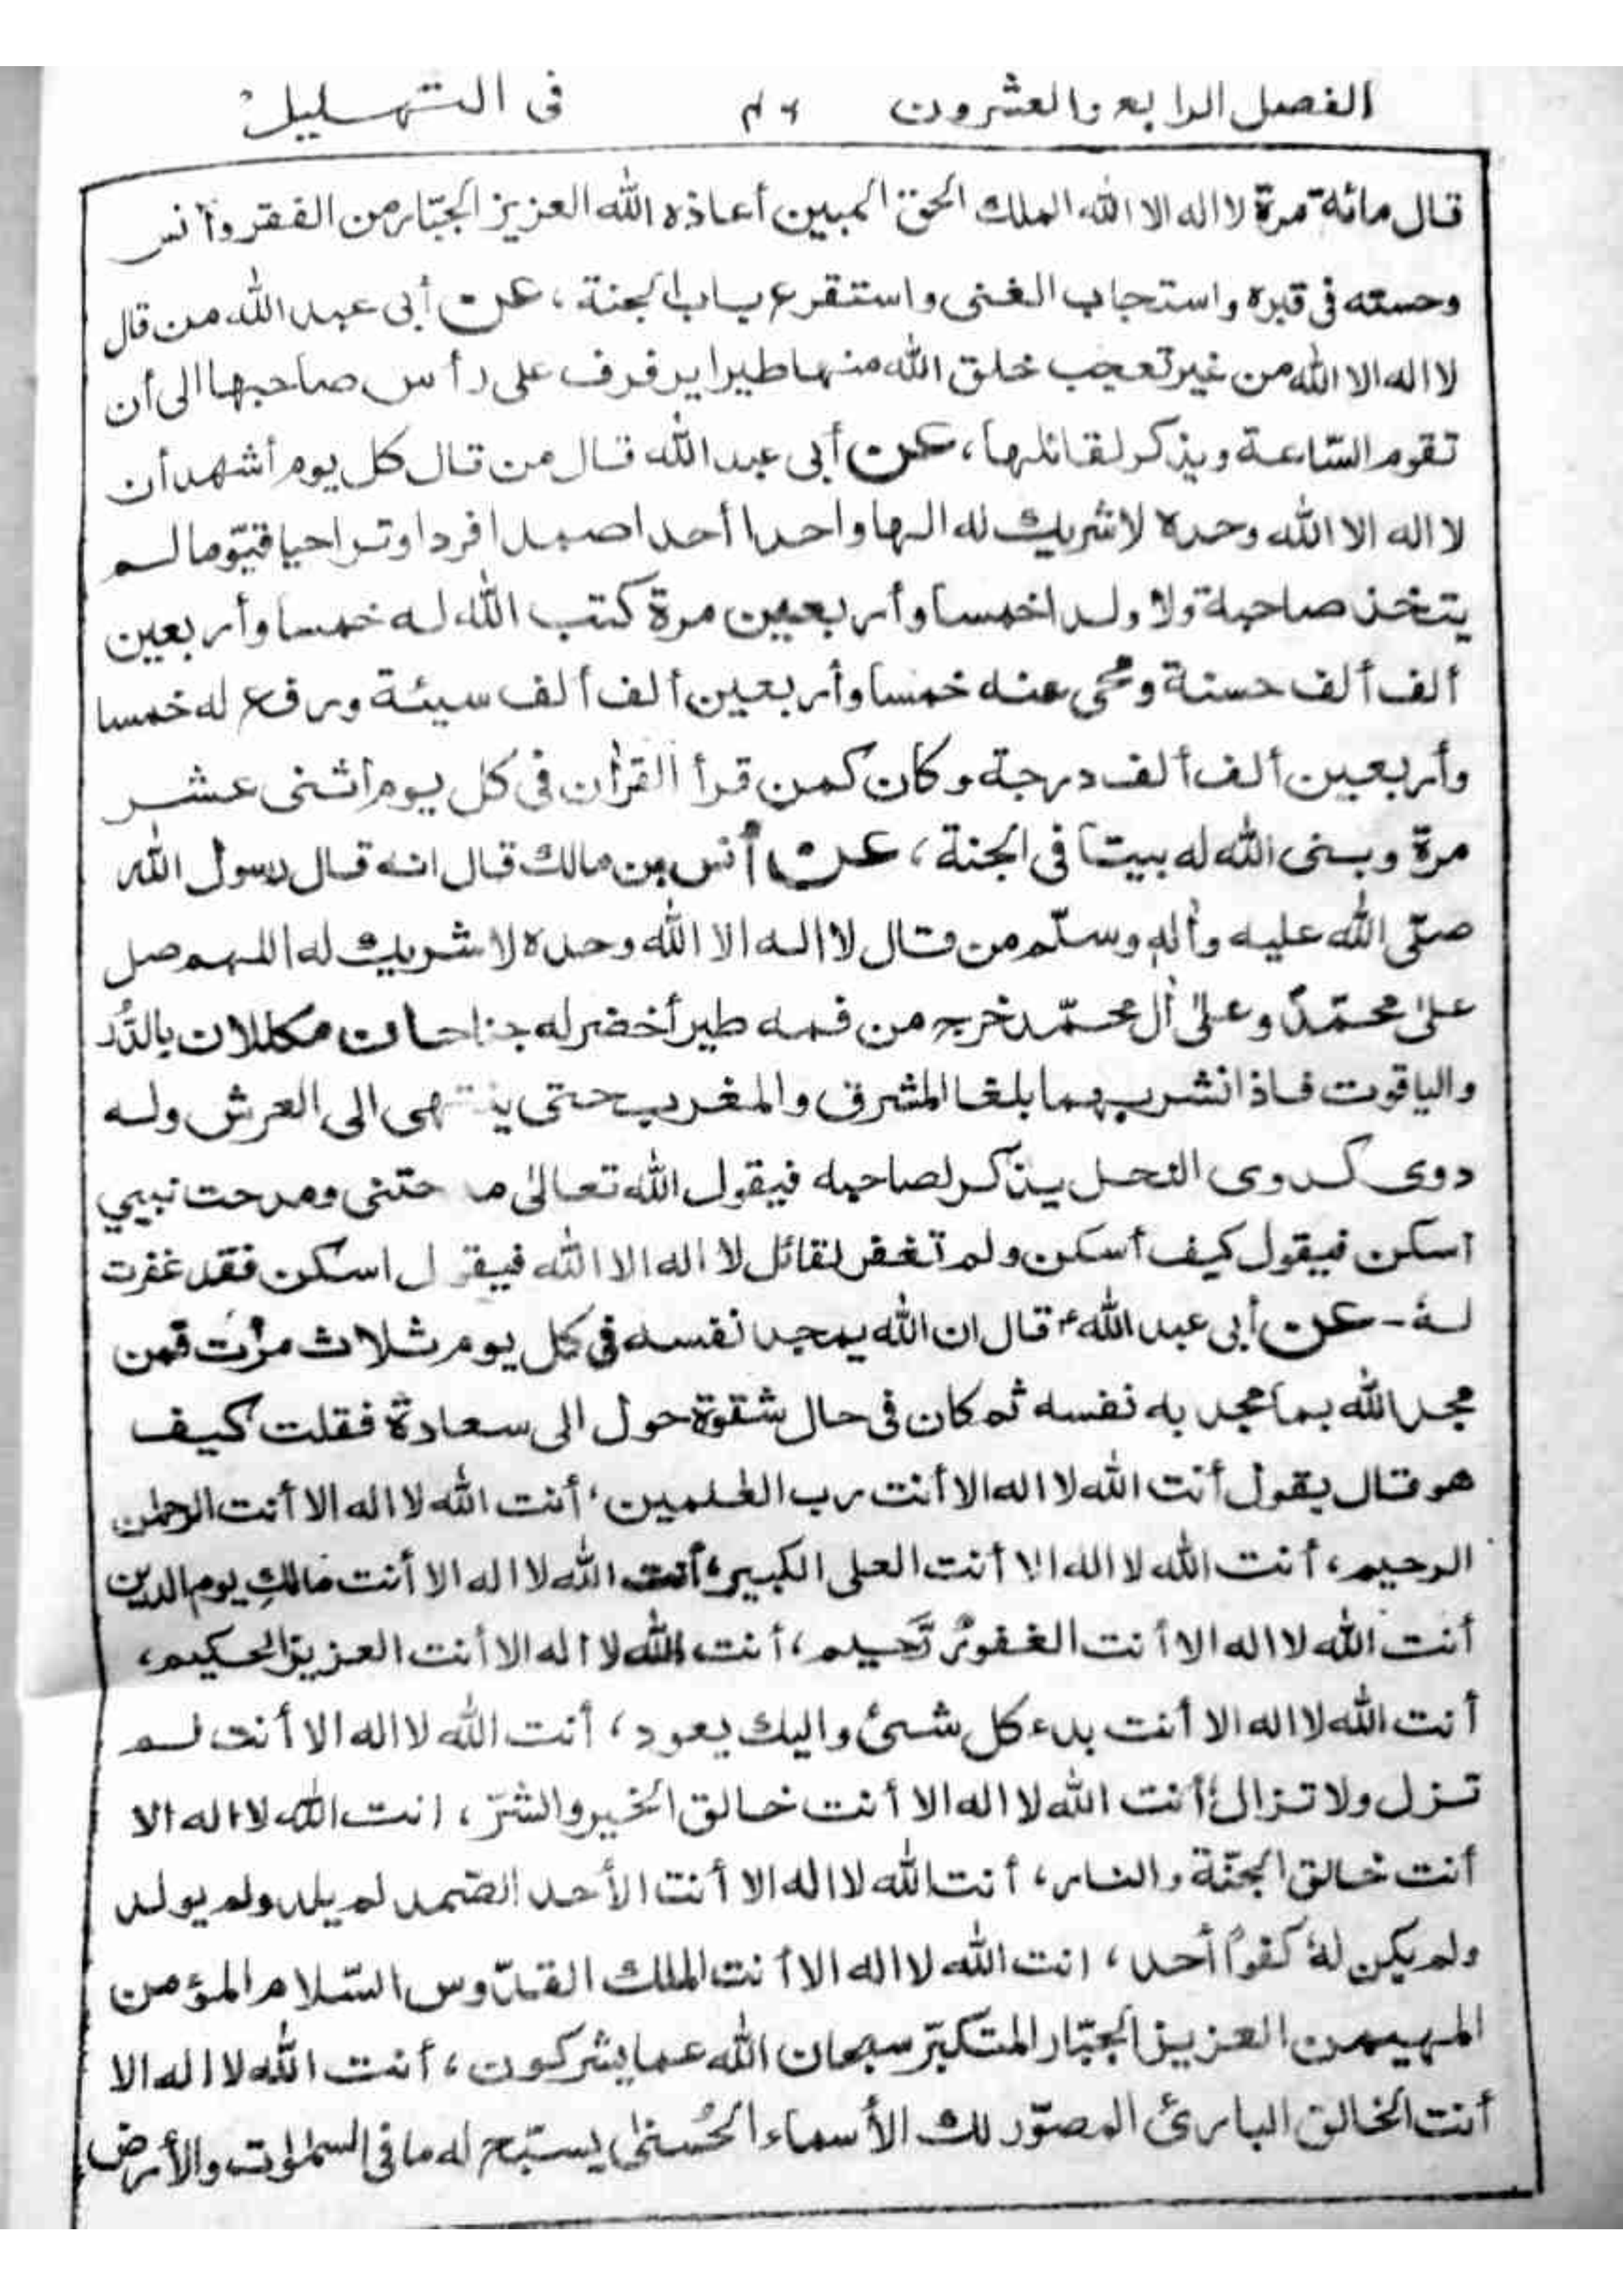 الفصل الرابع والعشرون ٤٦ فى التهليل
قال مائة مرة لا اله الا الله الملك الحق المبين أعاذه الله العزيز الجبّار من الفقر وأنس
وحسته فى قبره واستجاب الغنى واستقرع باب الجنة، عن أبى عبد الله من قال
لا اله الا الله من غير تعجب خلق الله منها طيرا يرفرف على رأس صاحبها الى أن
تقوم السّاعة ويذكر لقائلها، عن أبى عبد الله قال من قال كل يوم أشهد أن
لا اله الا الله وحده لا شريك له الها واحدا أحدا صمدا فردا وترا حيا قيّوما لم
يتخذ صاحبة ولا ولدا خمسا وأربعين مرة كتب الله له خمسا وأربعين
ألف ألف حسنة ومحى عنه خمسا وأربعين ألف ألف سيئة ورفع له خمسا
وأربعين ألف ألف درجة وكان كمن قرأ القرأن فى كل يوم اثنى عشر
مرة وبنى الله له بيتا فى الجنة، عن أنس بن مالك قال انه قال رسول الله
صلّى الله عليه وأله وسلّم من قال لا اله الا الله وحده لا شريك له اللهم صل
على محمّد وعلى أل محمّد خرج من فمه طير أخضر له جناحان مكللان بالدُّر
والياقوت فاذا نشر بهما بلغا المشرق والمغرب حتى ينتهى الى العرش وله
دوى كدوى النحل يذكر لصاحبه فيقول الله تعالى مدحتنى ومدحت نبيي
اسكن فيقول كيف أسكن ولم تغفر لقائل لا اله الا الله فيقول اسكن فقد غفرت
له - عن أبى عبد الله ؑ قال ان الله يمجد نفسه فى كل يوم ثلاث مرّت فمن
مجد الله بما مجد به نفسه ثم كان فى حال شقوة حول الى سعادة فقلت كيف
هو قال يقول أنت الله لا اله الا أنت رب العٰلمين، أنت الله لا اله الا أنت الرحمٰن
الرحيم، أنت الله لا اله الا أنت العلى الكبير، أنت الله لا اله الا أنت مالكِ يوم الدين
أنت الله لا اله الا أنت الغفورُ رَّحيم، أنت الله لا اله الا أنت العزيز الحكيم،
أنت الله لا اله الا أنت بدء كل شئ واليك يعود، أنت الله لا اله الا أنت لم
تزل ولا تزال، أنت الله لا اله الا أنت خالق الخير والشرّ، انت الله لا اله الا
أنت خالق الجنّة والنار، أنت الله لا اله الا أنت الأحد الصّمد لم يلد ولم يولد
ولم يكن لهُ كفوًا أحد، انت الله لا اله الا أنت الملك القدّوس السّلام المؤمن
المهيمن العزيز الجبّار المتكبّر سبحان الله عما يشركون، أنت الله لا اله الا
أنت الخالق البارئ المصوّر لك الأسماء الحُسنىٰ يسبّح له ما فى السمٰوٰت والأرض